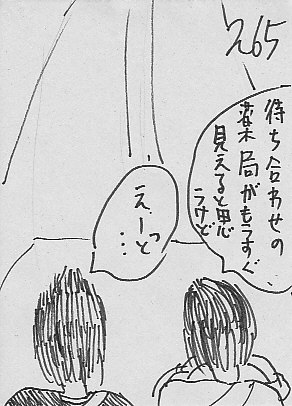 265
待ち合わせの
薬局がもうすぐ
見えると思
うけど
えーっと
…